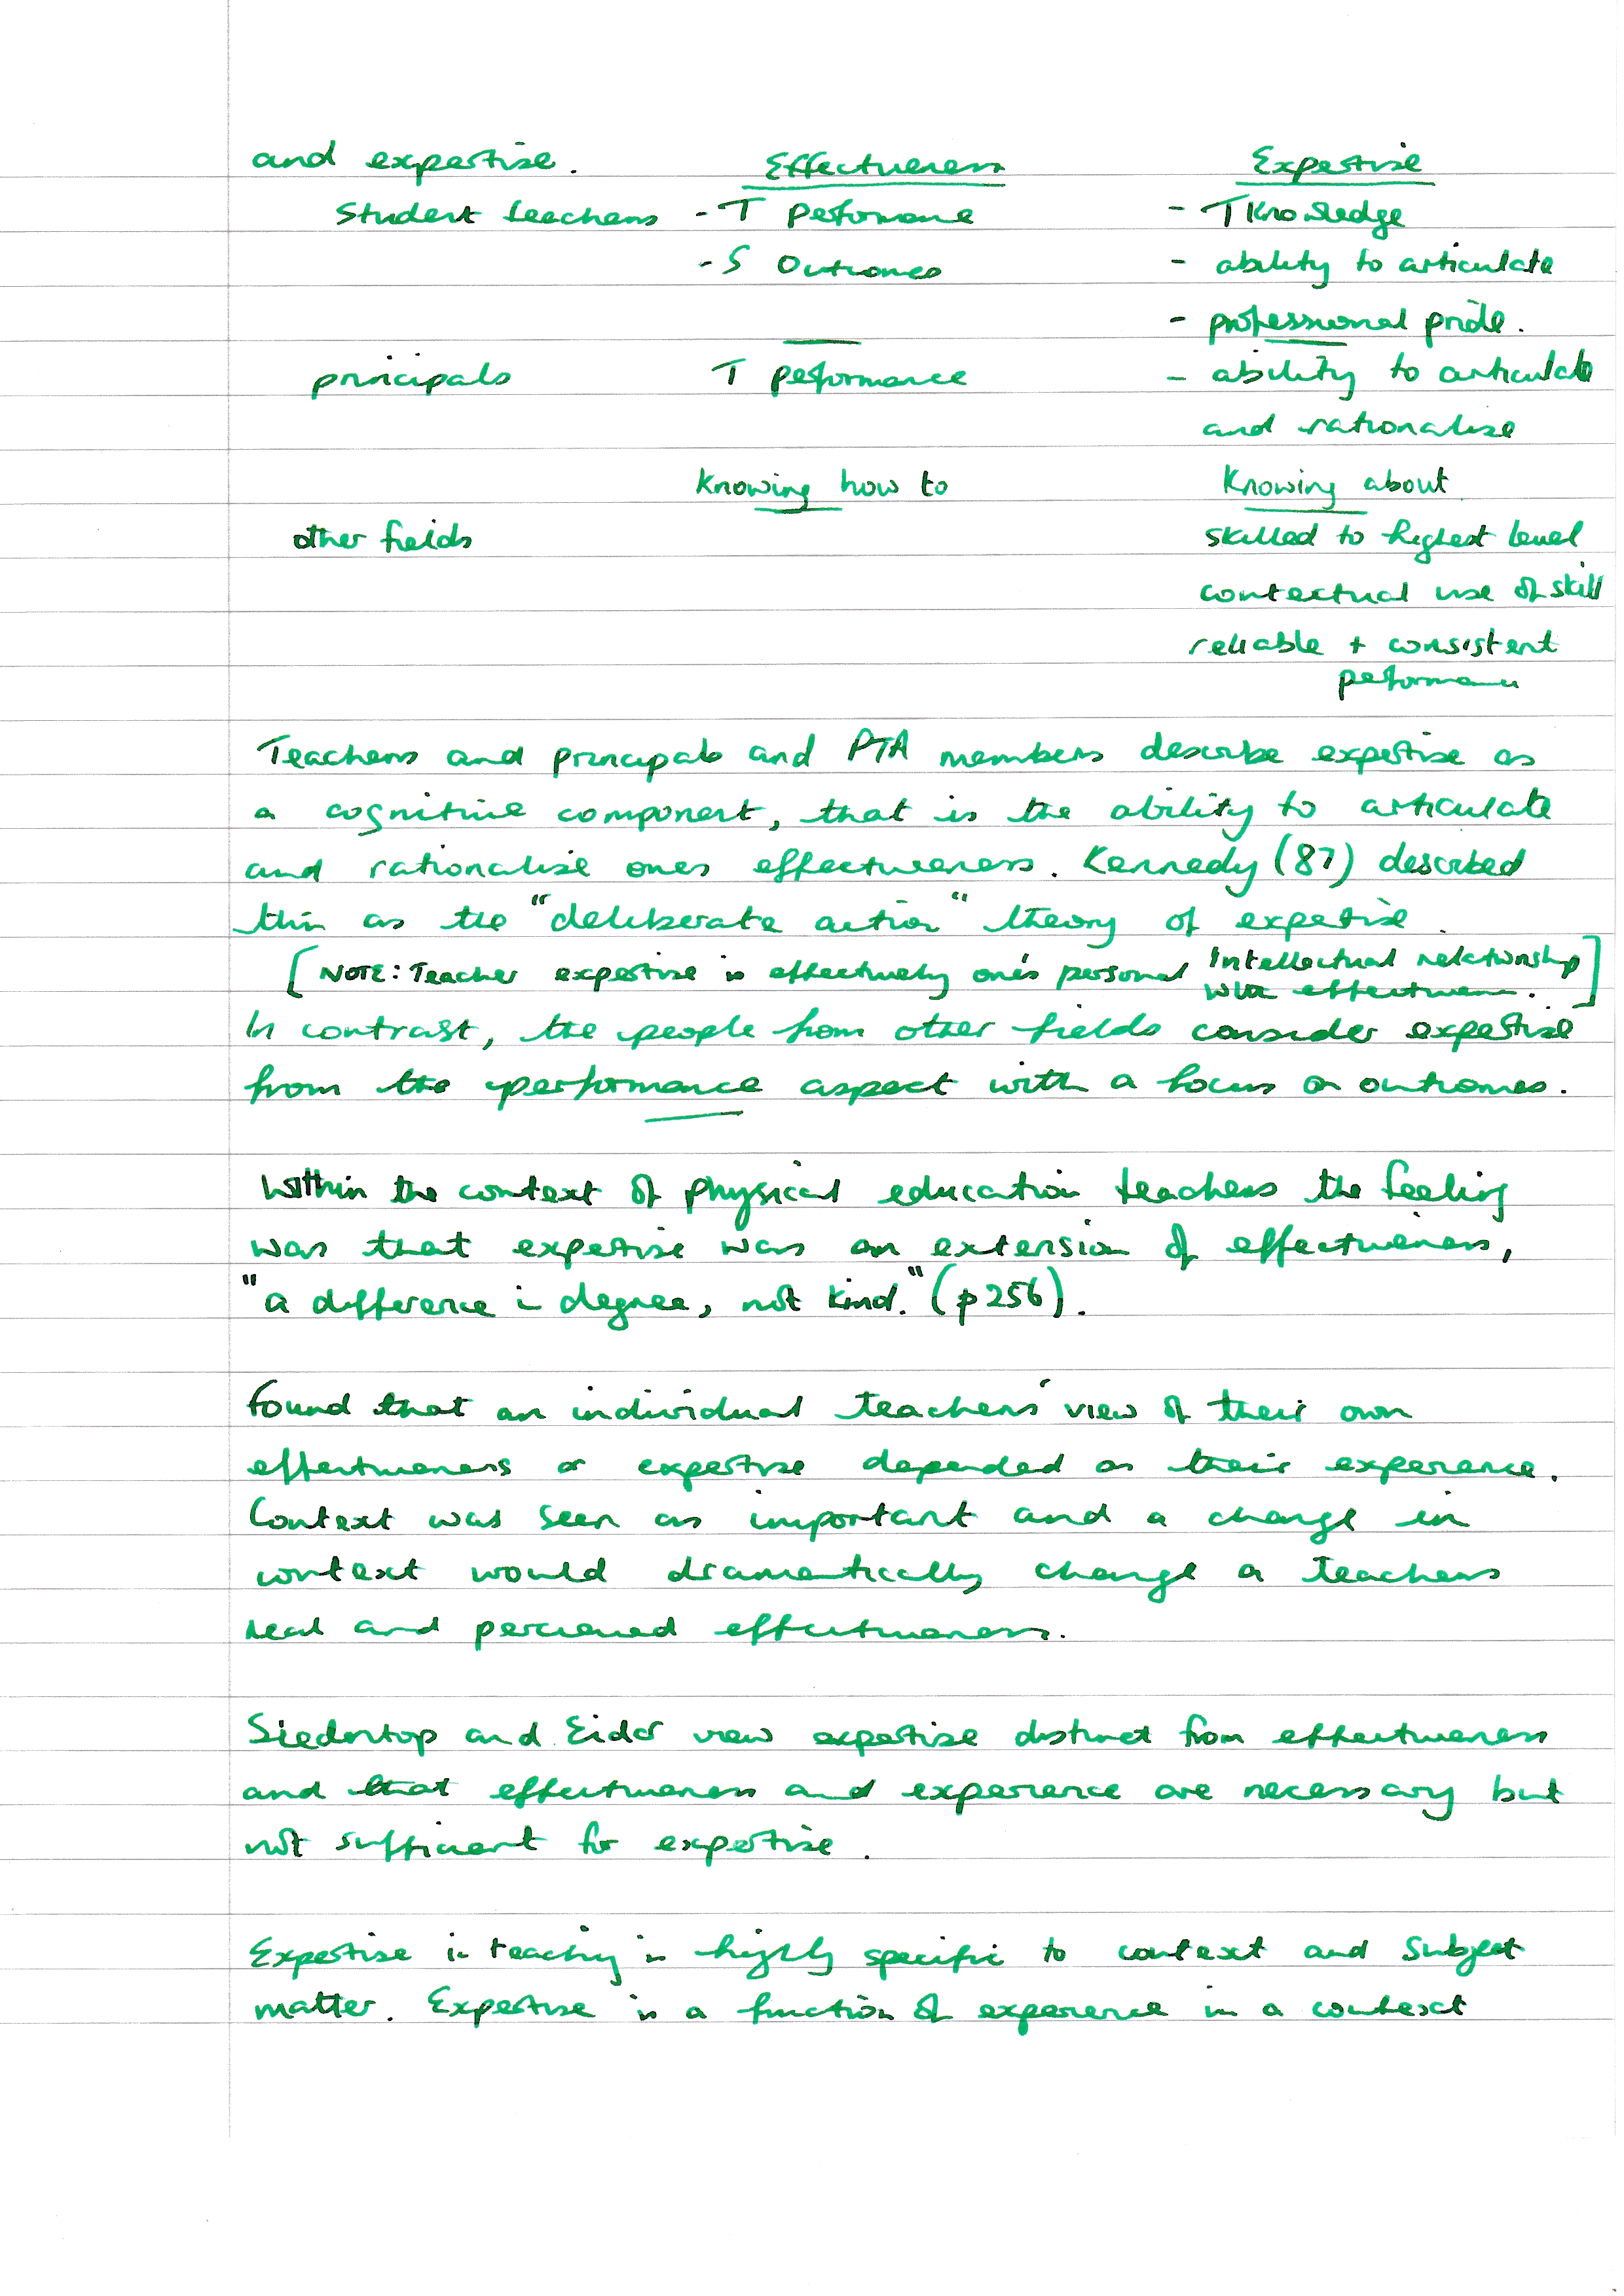 and expertise. Effectiveness Expertise
Student teachers - T performance - T Knowledge
- S Outcomes - ability to articulate
- professional pride.
principals T performance - ability to articulate
and rationalise
Knowing how to Knowing about
other fields skilled to highest level
contextual use of skill
reliable + consistent
performance
Teachers and principals and PTA members describe expertise as
a cognitive component, that is the ability to articulate
and rationalise ones effectiveness. Kennedy (87) described
this as the "deliberate action" theory of expertise.
[NOTE: Teacher expertise is effectively one's personal Intellectual relationship
with effectiveness.]
In contrast, the people from other fields consider expertise
from the performance aspect with a focus on outcomes.
Within the context of physical education teachers the feeling
was that expertise was an extension of effectiveness,
"a difference in degree, not kind." (p256).
Found that an individual teachers' view of their own
effectiveness or expertise depended on their experience.
Context was seen as important and a change in
context would dramatically change a teachers
real and perceived effectiveness.
Siedentop and Eldar view expertise distinct from effectiveness
and that effectiveness and experience are necessary but
not sufficient for expertise.
Expertise in teaching is highly specific to context and subject
matter. Expertise is a function of experience in a context